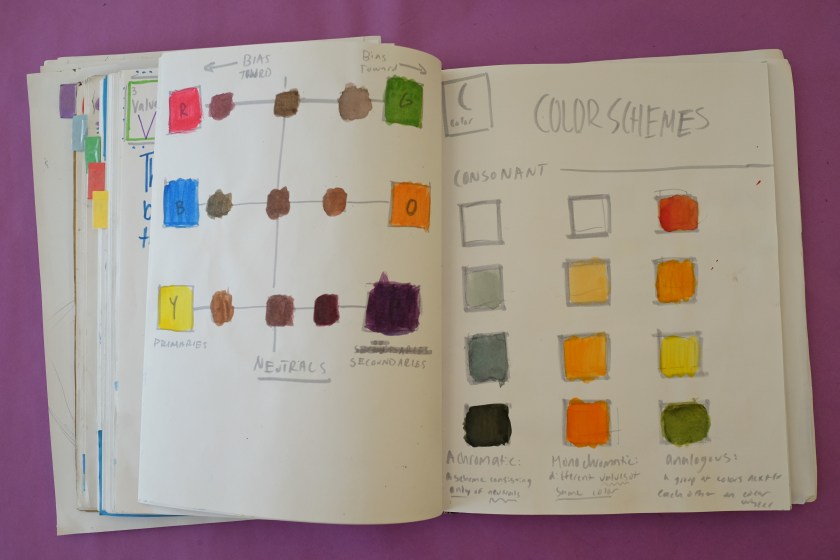 3
Valu
V
Th
b
t
← BIAS
TOWARD
BIAS
Toward →
R
G
B
O
Y
PRIMARIES
NEUTRALS
SECONDARIES
C
COLOR SCHEMES
CONSONANT
Achromatic:
a scheme containing
only of neutrals
Monochromatic:
different values of
same color
analogous:
a group of colors
each other on color
wheel